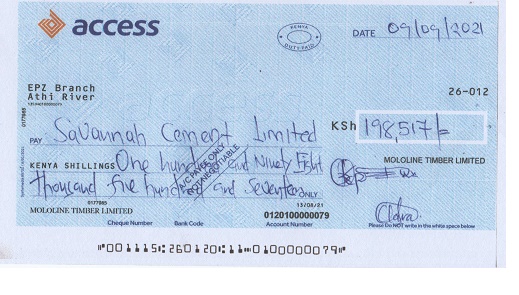 access
KENYA
DUTY PAID
DATE 09/09/2021
EPZ Branch
Athi River
26-012
0177985
PAY Savannah Cement Limited KSh 198,517/=
A/C PAYEE ONLY
NOT NEGOTIABLE
KENYA SHILLINGS One hundred and Ninety Eight
MOLOLINE TIMBER LIMITED
thousand five hundred and Seventeen ONLY
0177985
13/08/21
MOLOLINE TIMBER LIMITED
0120100000079
Cheque Number Bank Code Account Number Please Do NOT write in the white space below
⑈001115⑆260120⑆11⑈0100000079⑈